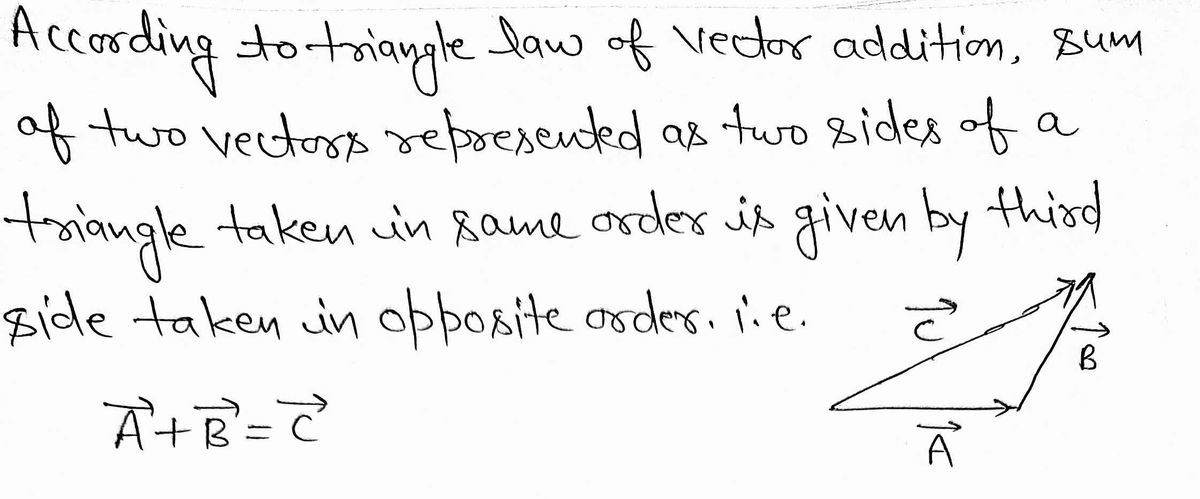 According to triangle law of vector addition, sum
of two vectors represented as two sides of a
triangle taken in same order is given by third
side taken in opposite order. i.e.
C⃗
B⃗
A⃗ + B⃗ = C⃗
A⃗